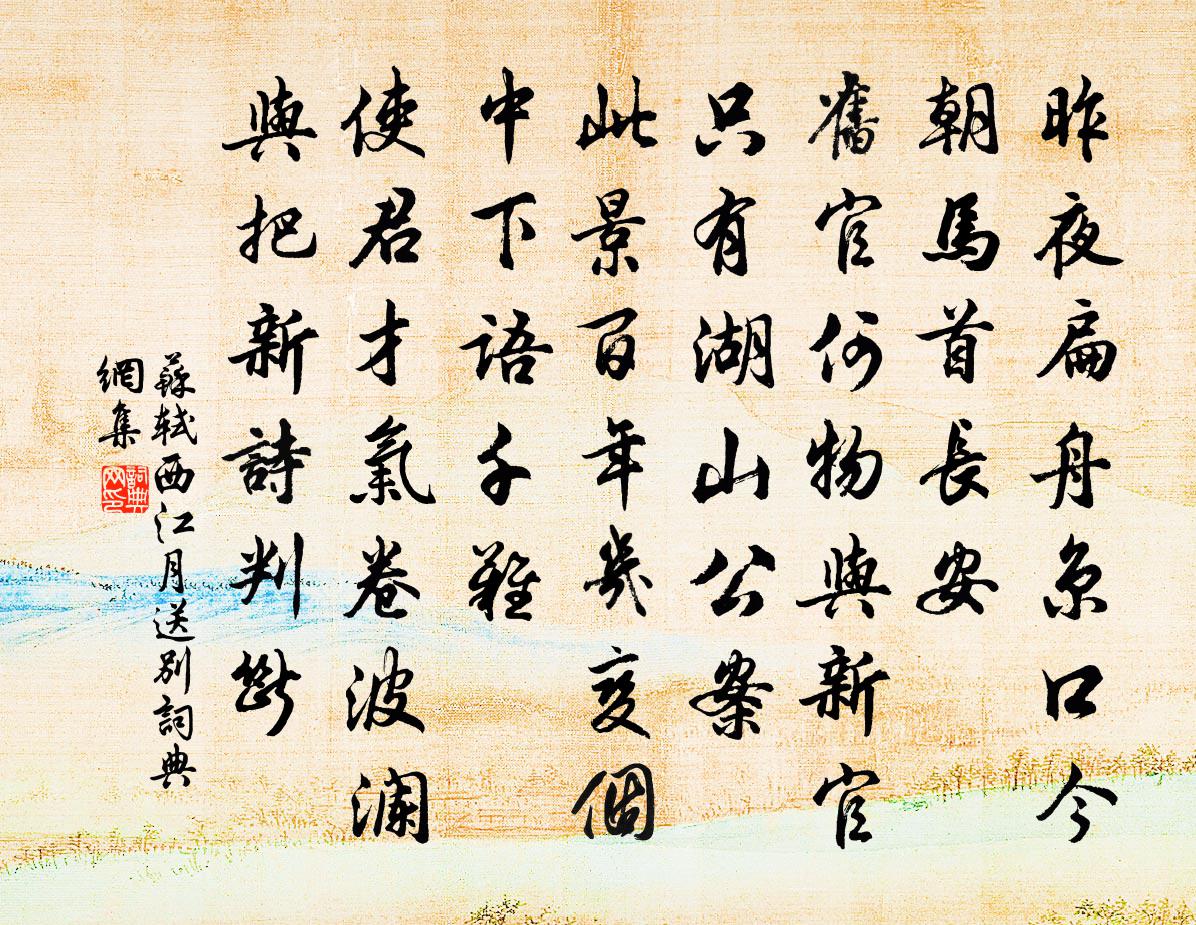 昨夜扁舟京口今
朝馬首長安
舊官何物與新官
只有湖山公案
此景百年幾變個
中下語千難
使君才氣卷波瀾
與把新詩判斷
蘇軾西江月送別詞典
網集
詞典網印